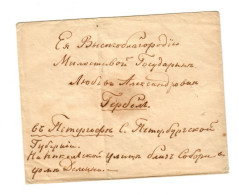 Ея Высокоблагородію
Милостивой Государынѣ
Любовь Александровнѣ
Гербель
въ Петергофъ С. Петербургской
Губерніи
улица близъ Собора
дома